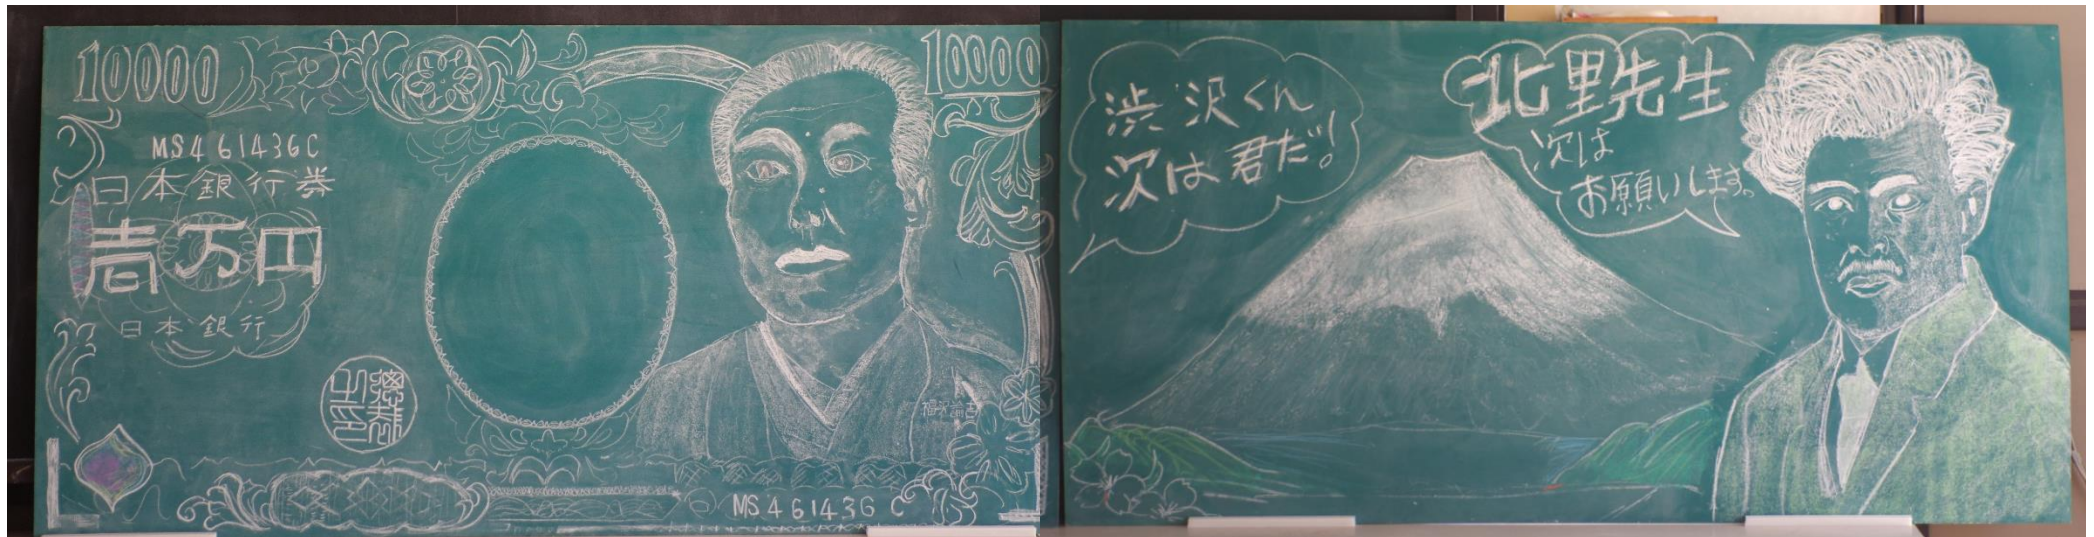 10000
10000
MS461436C
日本銀行券
壱万円
日本銀行
総裁之印
福沢諭吉
MS461436C
渋沢くん
次は君だ!
北里先生
次は
お願いします。